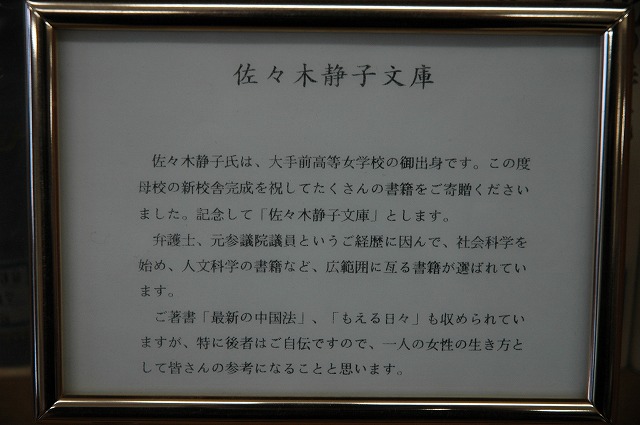 佐々木静子文庫
佐々木静子氏は、大手前高等女学校の御出身です。この度
母校の新校舎完成を祝してたくさんの書籍をご寄贈ください
ました。記念して「佐々木静子文庫」とします。
弁護士、元参議院議員というご経歴に因んで、社会科学を
始め、人文科学の書籍など、広範囲に亙る書籍が選ばれてい
ます。
ご著書「最新の中国法」、「もえる日々」も収められてい
ますが、特に後者はご自伝ですので、一人の女性の生き方と
して皆さんの参考になることと思います。